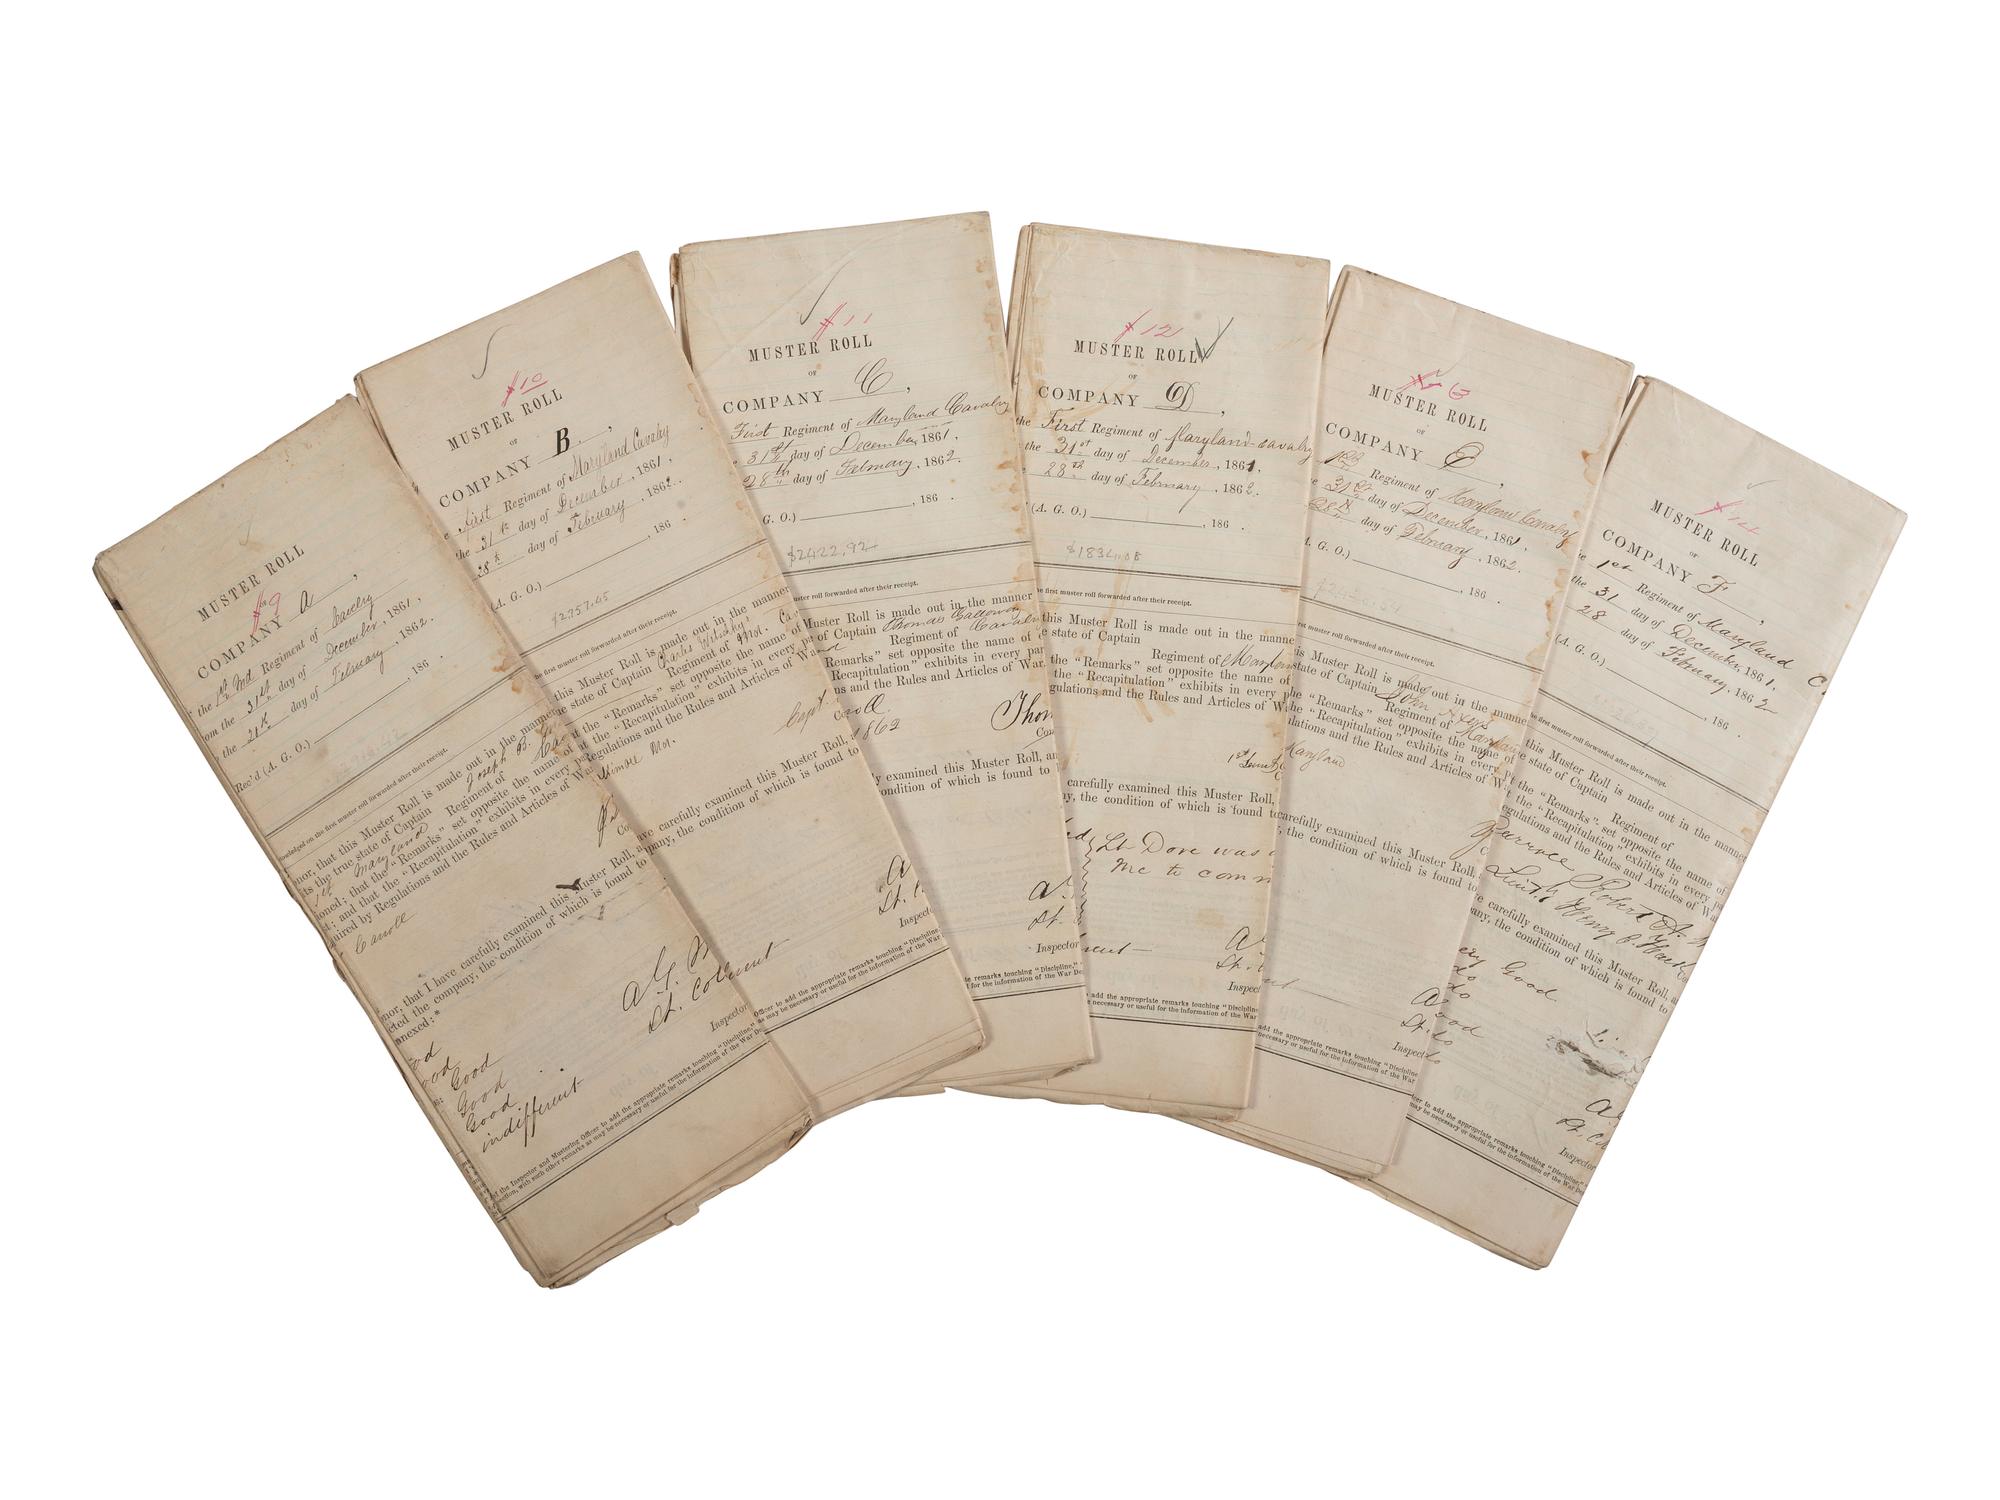 MUSTER ROLL
9
OF
COMPANY A,
the 1st Md Regiment of Cavelry
from the 31st day of December, 1861,
the 28th day of February, 1862.
Rec'd (A. G. O.) , 186
on the first muster roll forwarded after their receipt.
that this Muster Roll is made out in the manne
the true state of Captain Joseph B.
1st Maryland Regiment of
ioned; that the "Remarks" set opposite the name of
; and that the "Recapitulation" exhibits in every pa
quired by Regulations and the Rules and Articles of
Carroll
that I have carefully examined this Muster Roll, a
cted the company, the condition of which is found to
annexed:*
Good
Good
Good
indifferent
A. G.
Lt. Colonel
Inspector
of the Inspector and Mustering Officer to add the appropriate remarks touching "Discipline,"
with such other remarks as may be necessary or useful for the information of the War De
$10
MUSTER ROLL
OF
COMPANY B,
first Regiment of Maryland Cavalry
the 31st day of December, 1861,
28th day of February, 1862.
(A. G. O.) , 186 .
$2757.45
first muster roll forwarded after their receipt.
this Muster Roll is made out in the manne
state of Captain Charles
Regiment of Md. Ca
the "Remarks" set opposite the name of
the "Recapitulation" exhibits in every pa
Regulations and the Rules and Articles of Wa
Capt.
Md.
carefully examined this Muster Roll, a
the condition of which is found to
A
Lt.
Inspect
Officer to add the appropriate remarks touching "Discipline
as may be necessary or useful for the information of the War
#11
MUSTER ROLL
OF
COMPANY C,
First Regiment of Maryland Cavalry
31st day of December, 1861,
28th day of February, 1862.
, 186 .
G. O.)
$2422.92
muster roll forwarded after their receipt.
Muster Roll is made out in the manner
of Captain Thomas Galloway
Regiment of Cavalry
Remarks" set opposite the name of
Recapitulation" exhibits in every par
ns and the Rules and Articles of War.
1862
Thom
Com
y examined this Muster Roll, an
ondition of which is found to
A
Lt.
Inspector
appropriate remarks touching "Discipline,"
useful for the information of the War De
$12
MUSTER ROLL
OF
COMPANY D,
the First Regiment of Maryland cavalry
the 31st day of December, 1861,
28th day of February, 1862.
(A. G. O.) , 186 .
he first muster roll forwarded after their receipt.
this Muster Roll is made out in the manne
e state of Captain
Regiment of Marylan
the "Remarks" set opposite the name of
the "Recapitulation" exhibits in every p
gulations and the Rules and Articles of W
1st Lieut
carefully examined this Muster Roll,
y, the condition of which is found t
Lt Dove was
me to comm
A
Lt.
Inspec
add the appropriate remarks touching "Discipline
necessary or useful for the information of the War
MUSTER ROLL
OF
COMPANY
1st Regiment of Maryland Cavalry
31st day of December, 1861,
28th day of February, 1862.
. G. O.) , 186 .
rst muster roll forwarded after their receipt.
is Muster Roll is made out in the manne
state of Captain John
Regiment of Maryland
he "Remarks" set opposite the name o
he "Recapitulation" exhibits in every p
lations and the Rules and Articles of W
Maryland
carefully examined this Muster Roll,
, the condition of which is found to
A
Lt.
Inspect
add the appropriate remarks touching "Discipline
necessary or useful for the information of the War
14
MUSTER ROLL
OF
COMPANY F,
1st Regiment of Maryland C.
the 31 day of December, 1861,
28 day of February, 1862
(A. G. O.) , 186 .
he first muster roll forwarded after their receipt.
this Muster Roll is made out in the manner
e state of Captain
Regiment of
the "Remarks" set opposite the name of
the "Recapitulation" exhibits in every pa
egulations and the Rules and Articles of Wa
Robert
Henry C.
carefully examined this Muster Roll, a
any, the condition of which is found to
Good
do
do
Good
do
A
Lt. C
Inspector
cer to add the appropriate remarks touching "Discipline,"
may be necessary or useful for the information of the War De